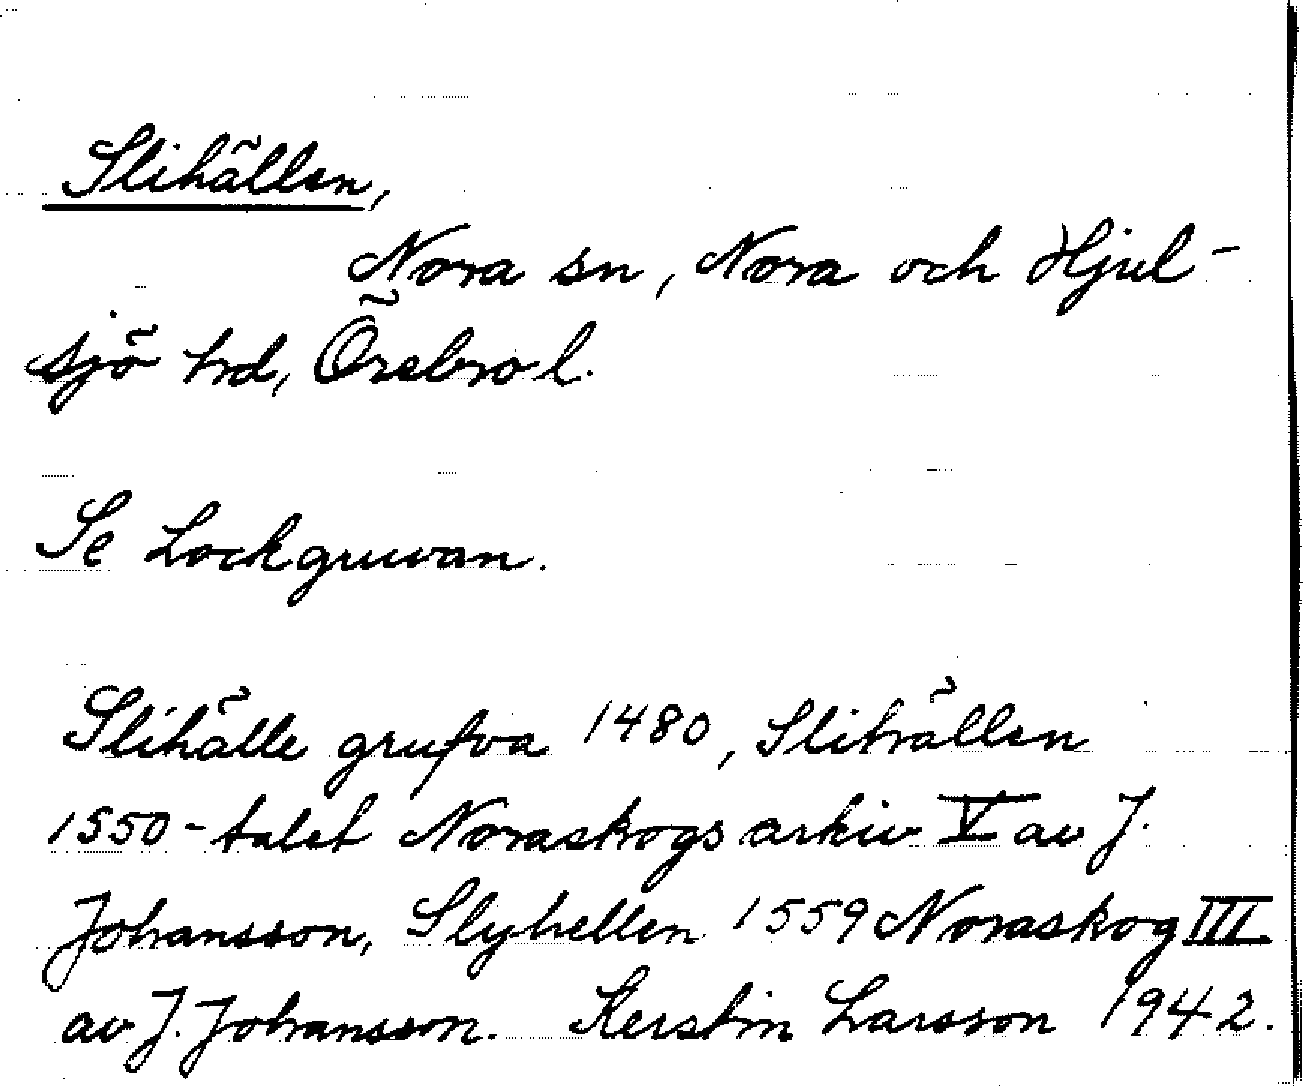 Slihällen,
Nora sn, Nora och Hjul-
sjö hd, Örebro l.
Se Lockgruvan.
Slihälle grufva 1480, Slihällen
1550-talet Noraskogs arkiv V av J.
Johansson, Slyhellen 1559 Noraskog III
av J. Johansson. Kerstin Larsson 1942.